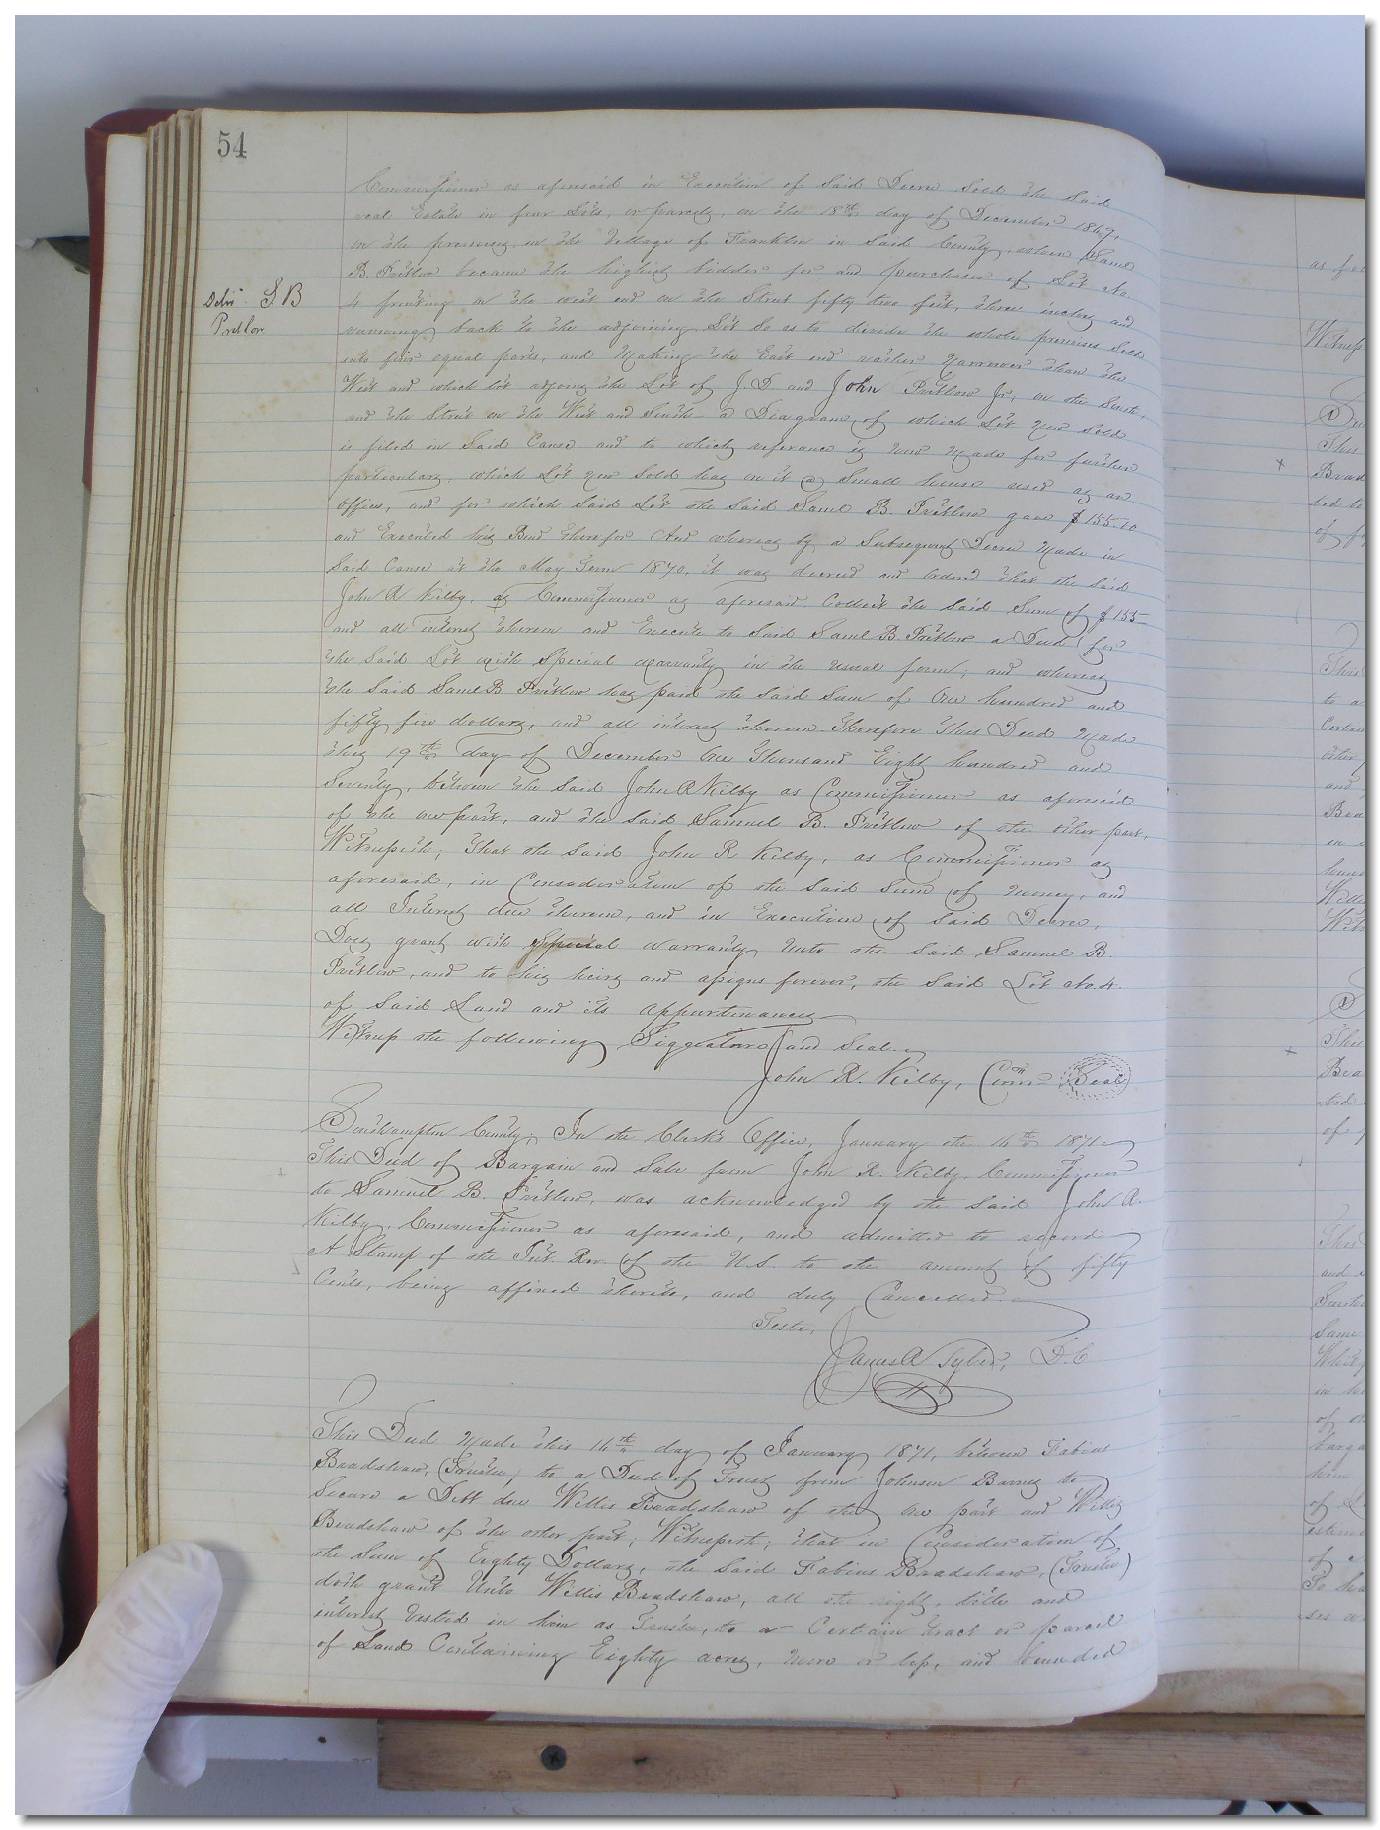 54
Commissioner as aforesaid in Execution of Said Decree Sold the Said
real Estate in four Lots, or parcels, on the 18th day of December 1869,
on the premises in the Village of Franklin in Said County, when Saml
B. Pretlow became the highest bidder for and purchaser of Lot No
Deliv. S. B
Pretlow
4 fronting on the west end on the Street fifty two feet, three inches and
running back to the adjoining Lot So as to divide the whole premises Sold
into four equal parts, and Making the East end rather Narrower than the
West and which lot adjoins the Lot of J. D. and John Pretlow Jr, on the South,
and the Street on the West and South a Diagram of which Lot Now Sold
is filed in Said Cause and to which reference is now Made for further
particulars, which Lot now Sold has on it a Small house used as an
Office, and for which Said Lot the Said Saml B. Pretlow gave $155.00
and Executed his Bond therefor And whereas by a Subsequent Decree Made in
Said Cause at the May Term 1870, it was decreed and Ordered that the Said
John R Kilby, as Commissioner as aforesaid Collect the Said Sum of $155
and all interest thereon and Execute to Said Saml B. Pretlow a Deed for
the Said Lot with Special warranty in the usual form; and whereas
the Said Saml B Pretlow has paid the Said Sum of One hundred and
fifty five dollars, and all interest thereon Therefore this Deed Made
this 19th day of December One Thousand Eight hundred and
Seventy, between the Said John R Kilby as Commissioner as aforesaid
of the one part, and the Said Samuel B. Pretlow of the other part,
Witnesseth, that the Said John R Kilby, as Commissioner as
aforesaid, in Consideration of the Said Sum of money, and
all Interest due thereon, and in Execution of Said Decree,
Does grant with Special warranty Unto the Said Samuel B.
Pretlow, and to his heirs and assigns forever, the Said Lot No. 4.
of Said Land and its appurtenances
Witness the following Siggnature and Seal.
John R. Kilby, Comr Seal
Southampton County; In the Clerk's Office, January the 16th 1871
This Deed of Bargain and Sale from John R. Kilby, Commissioner
to Samuel B. Pretlow, was acknowledged by the Said John R.
Kilby, Commissioner as aforesaid, and admitted to record
A Stamp of the Int. Rev. of the U.S. to the amount of fifty
Cents, being affixed thereto, and duly Cancelled.
Teste,
James R Tyler, D.C
This Deed Made this 16th day of January 1871, between Fabius
Bradshaw, (Trustee, to a Deed of Trust from Johnson Barnes to
Secure a Debt due Willis Bradshaw of the one part and Willis
Bradshaw of the other part; Witnesseth, that in Consideration of
the Sum of Eighty Dollars, the Said Fabius Bradshaw, (Trustee)
doth grant Unto Willis Bradshaw, all the right, title and
interest Vested in him as Trustee, to a Certain tract or parcel
of Land Containing Eighty acres, more or less, and bounded